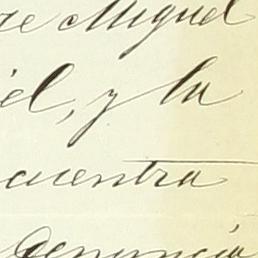 re Miguel
él, y la
cuentra
Denuncia